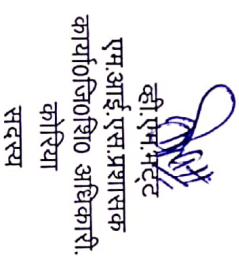 व्ही.एम.भट्ट
एम.आई.एस.प्रशासक
कार्या०जि०शि० अधिकारी.
कोरिया
सदस्य